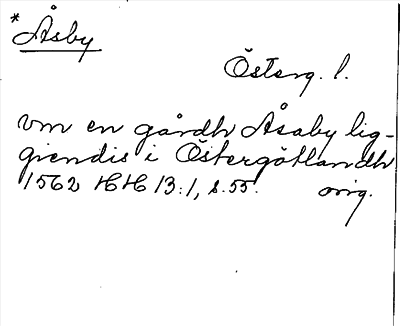 * Åsby
Österg. l.
vm en gårdh Åsaby lig-
giendis i Östergötlandh
1562 HH 13:1, s. 55. orig.